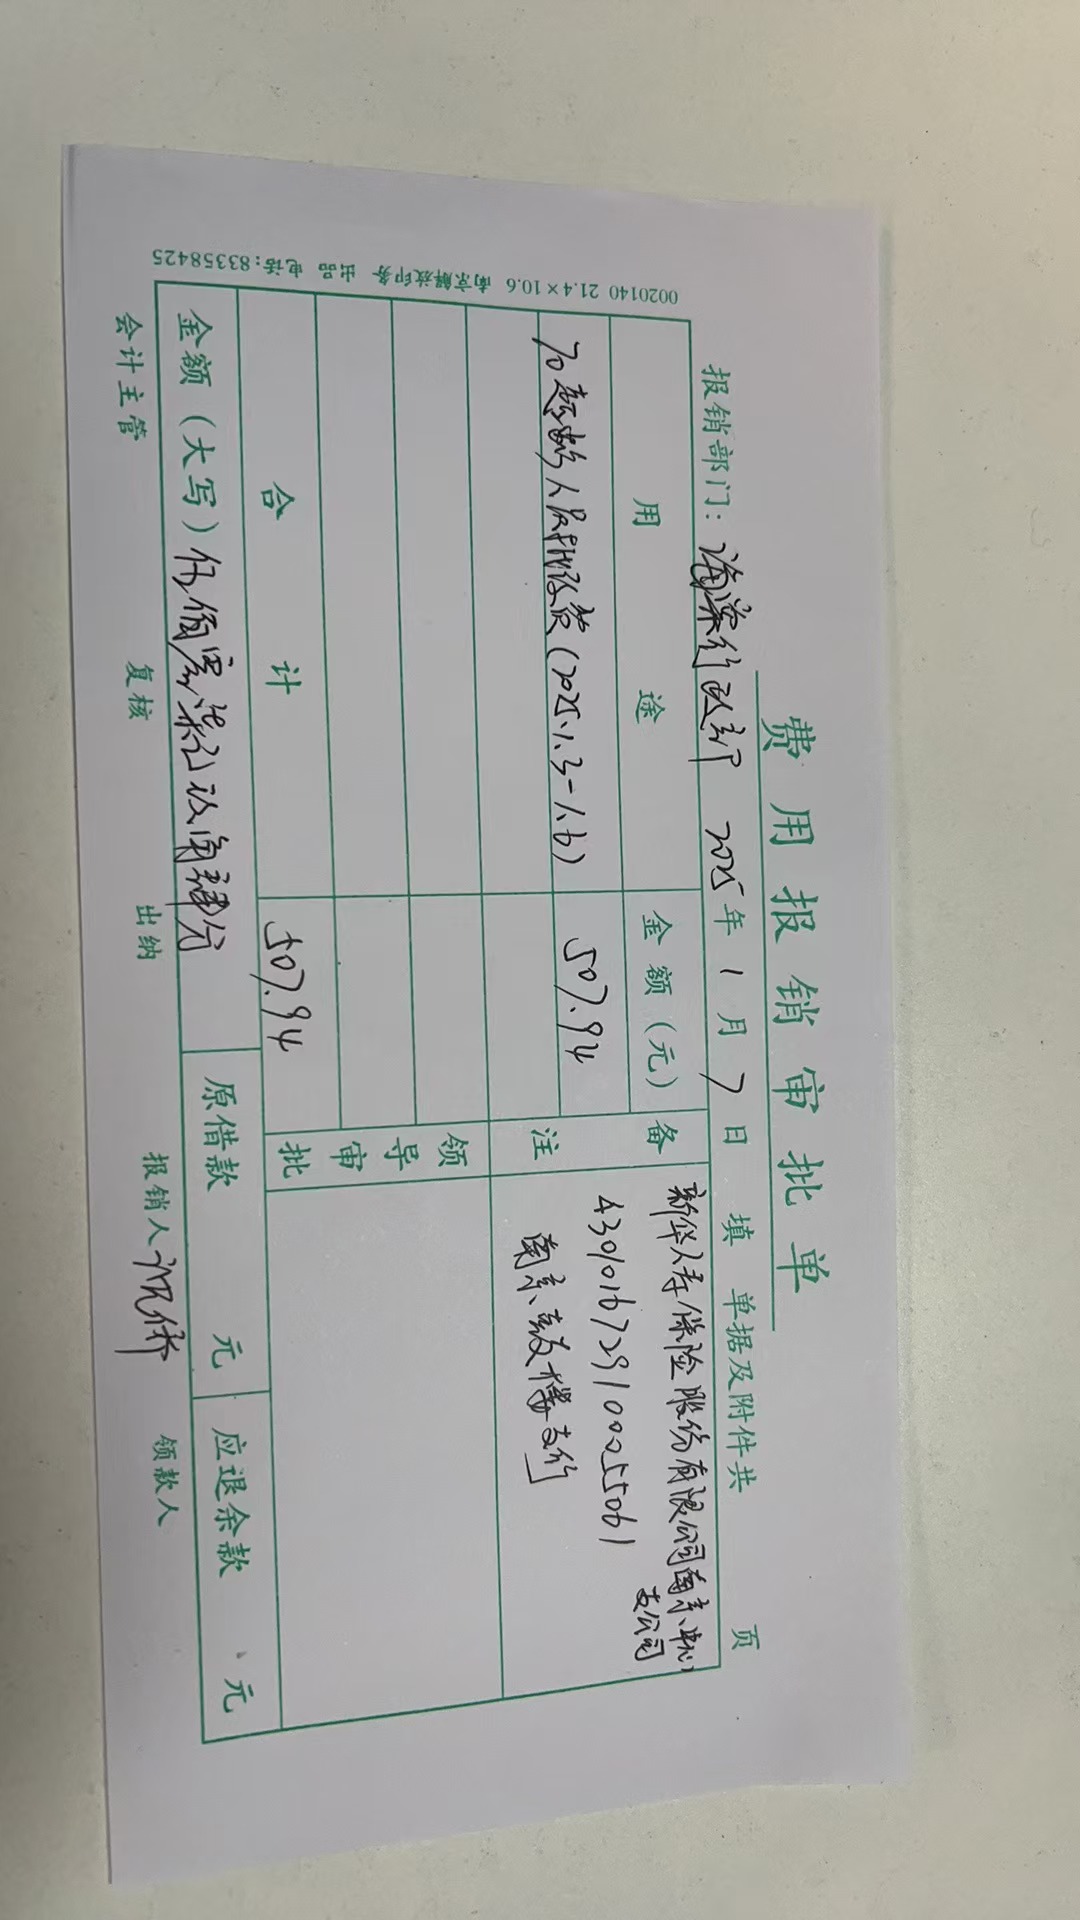 费用报销审批单
报销部门：海棠行政部 2025年1月7日填 单据及附件共 页
用途 金额（元） 备注
507.94
(2025.1.3-1.6)
新华人寿保险股份有限公司南京中心支公司
4301016729100255061
南京鼓楼支行
领导审批
合计 507.94
金额（大写）伍佰零柒元玖角肆分 原借款 元 应退余款 元
会计主管 复核 出纳 报销人 领款人
0020140 21.4×10.6 南京解放印务 出品 电话:83358425